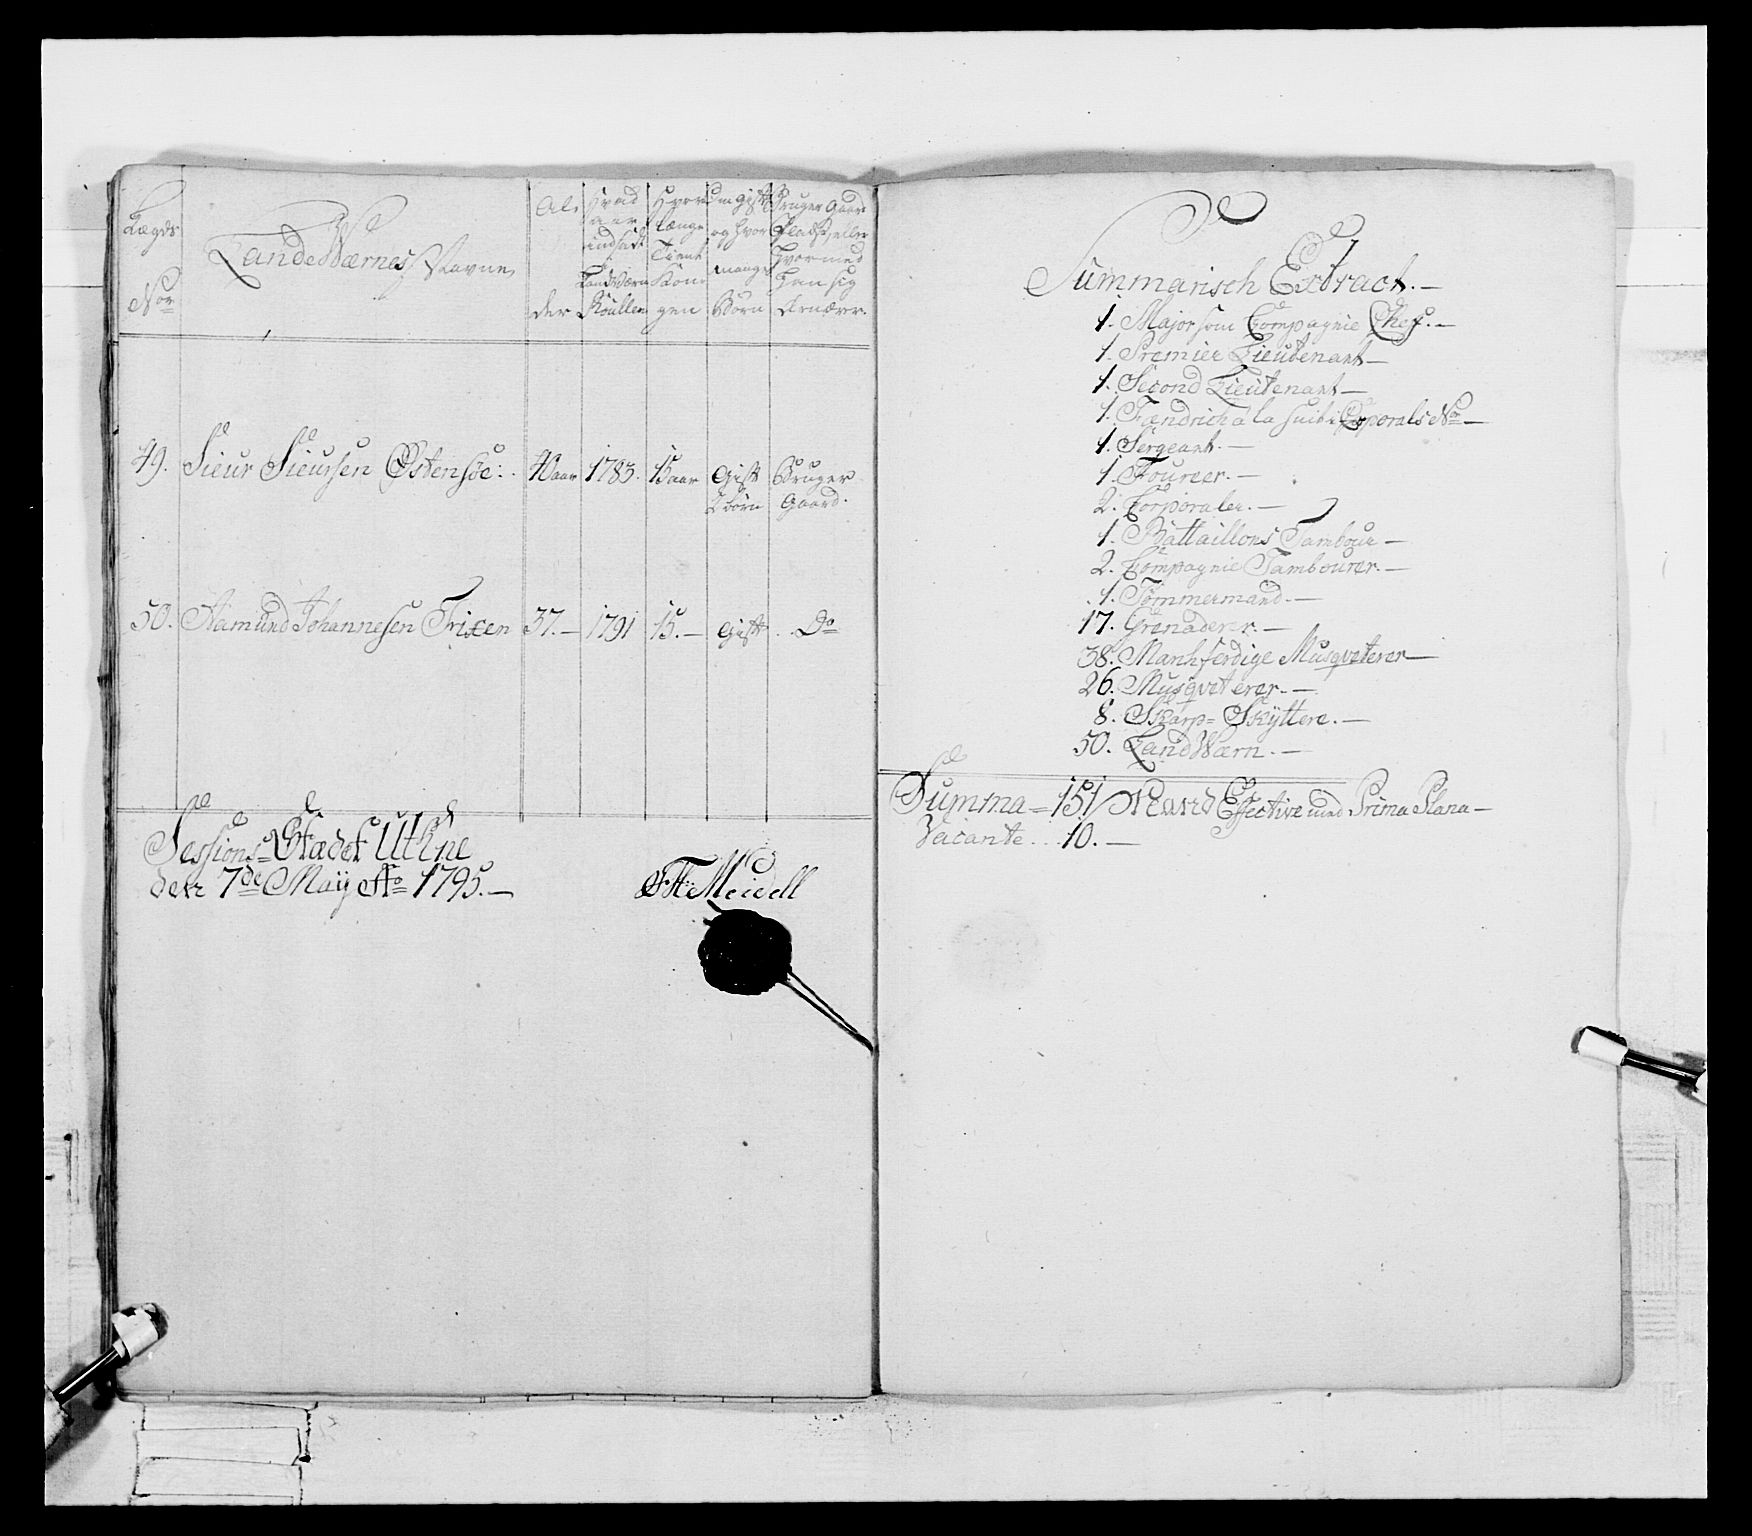 Lægds Nor
LandeWærnes Navne
Al, der
Hvad aar indsadt LandWærn Roullen
Hvor længe Tient Kongen
Om gift og hvor mange Børn
Bruger Gaard Plads, eller hvormed han sig Ernærer.
49. Sieur Sieursen Østensøe: 40 aar 1783. 15 aar Gift Bruger
2 børn Gaard.
50. Aamund Johannesen Trixen 37.— 1791 15.— Gift Do
Sessions-Stædet Uthne
den 7de Maij Ao 1795.—
Meidell
Summarisch Extract.—
1. Major som Compagnie Chef.—
1. Premier Lieutenant—
1. Second Lieutenant—
1. Fændrich a la suite Corporals No—
1. Sergeant.—
1. Foureer.—
2. Corporaler.—
1. Battaillons Tambour—
2. Compagnie Tambourer.—
1. Tømmermand.—
17. Grenaderer.—
38. Manhferdige Musqveterer—
26. Musqveterer.—
8. Skarp= Skyttere.—
50. LandWærn.—
Summa = 151 Mand Effective med Prima Plana—
Vacante... 10.—